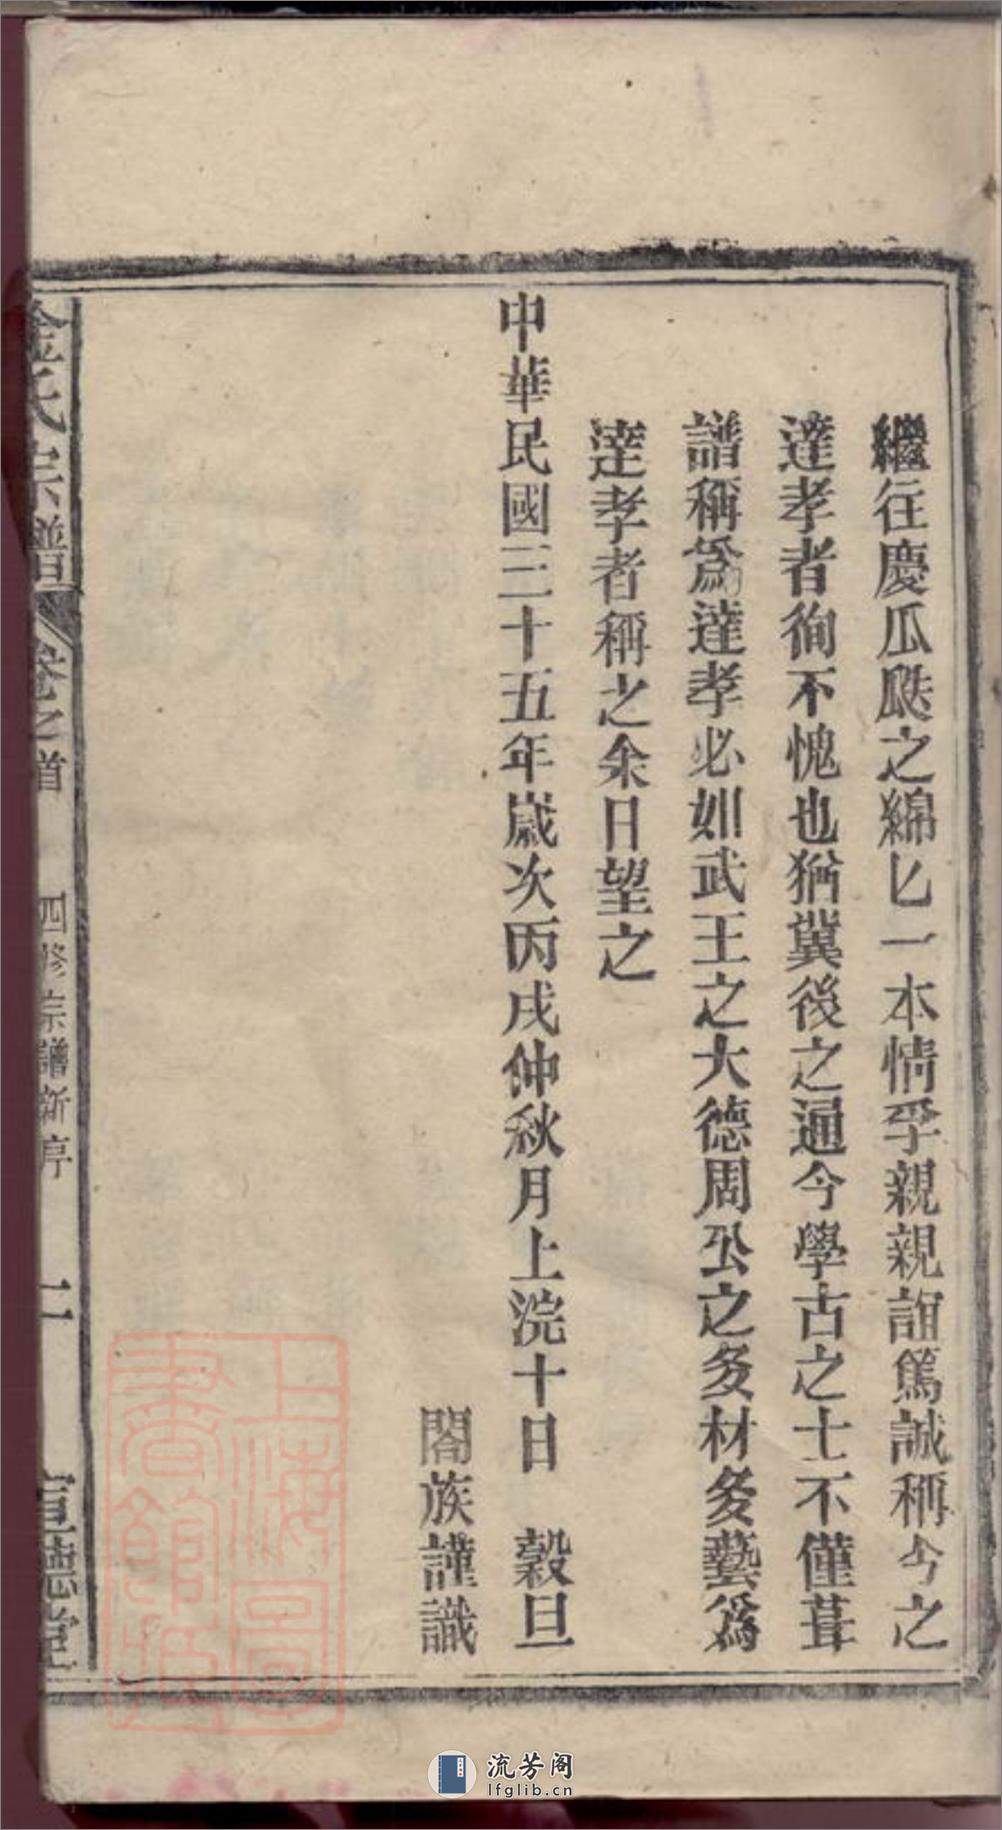 繼往慶瓜瓞之綿匕一本情孚親親誼篤誠稱今之
達孝者徇不愧也猶冀後之通今學古之士不僅葺
譜稱爲達孝必如武王之大德周公之多材多藝爲
達孝者稱之余日望之
中華民國三十五年歲次丙戌仲秋月上浣十日 穀旦
闔族謹識
金氏宗譜 卷之首 四修宗譜新序 二 亘德堂
上海圖書館藏
流芳阁
lfglib.cn